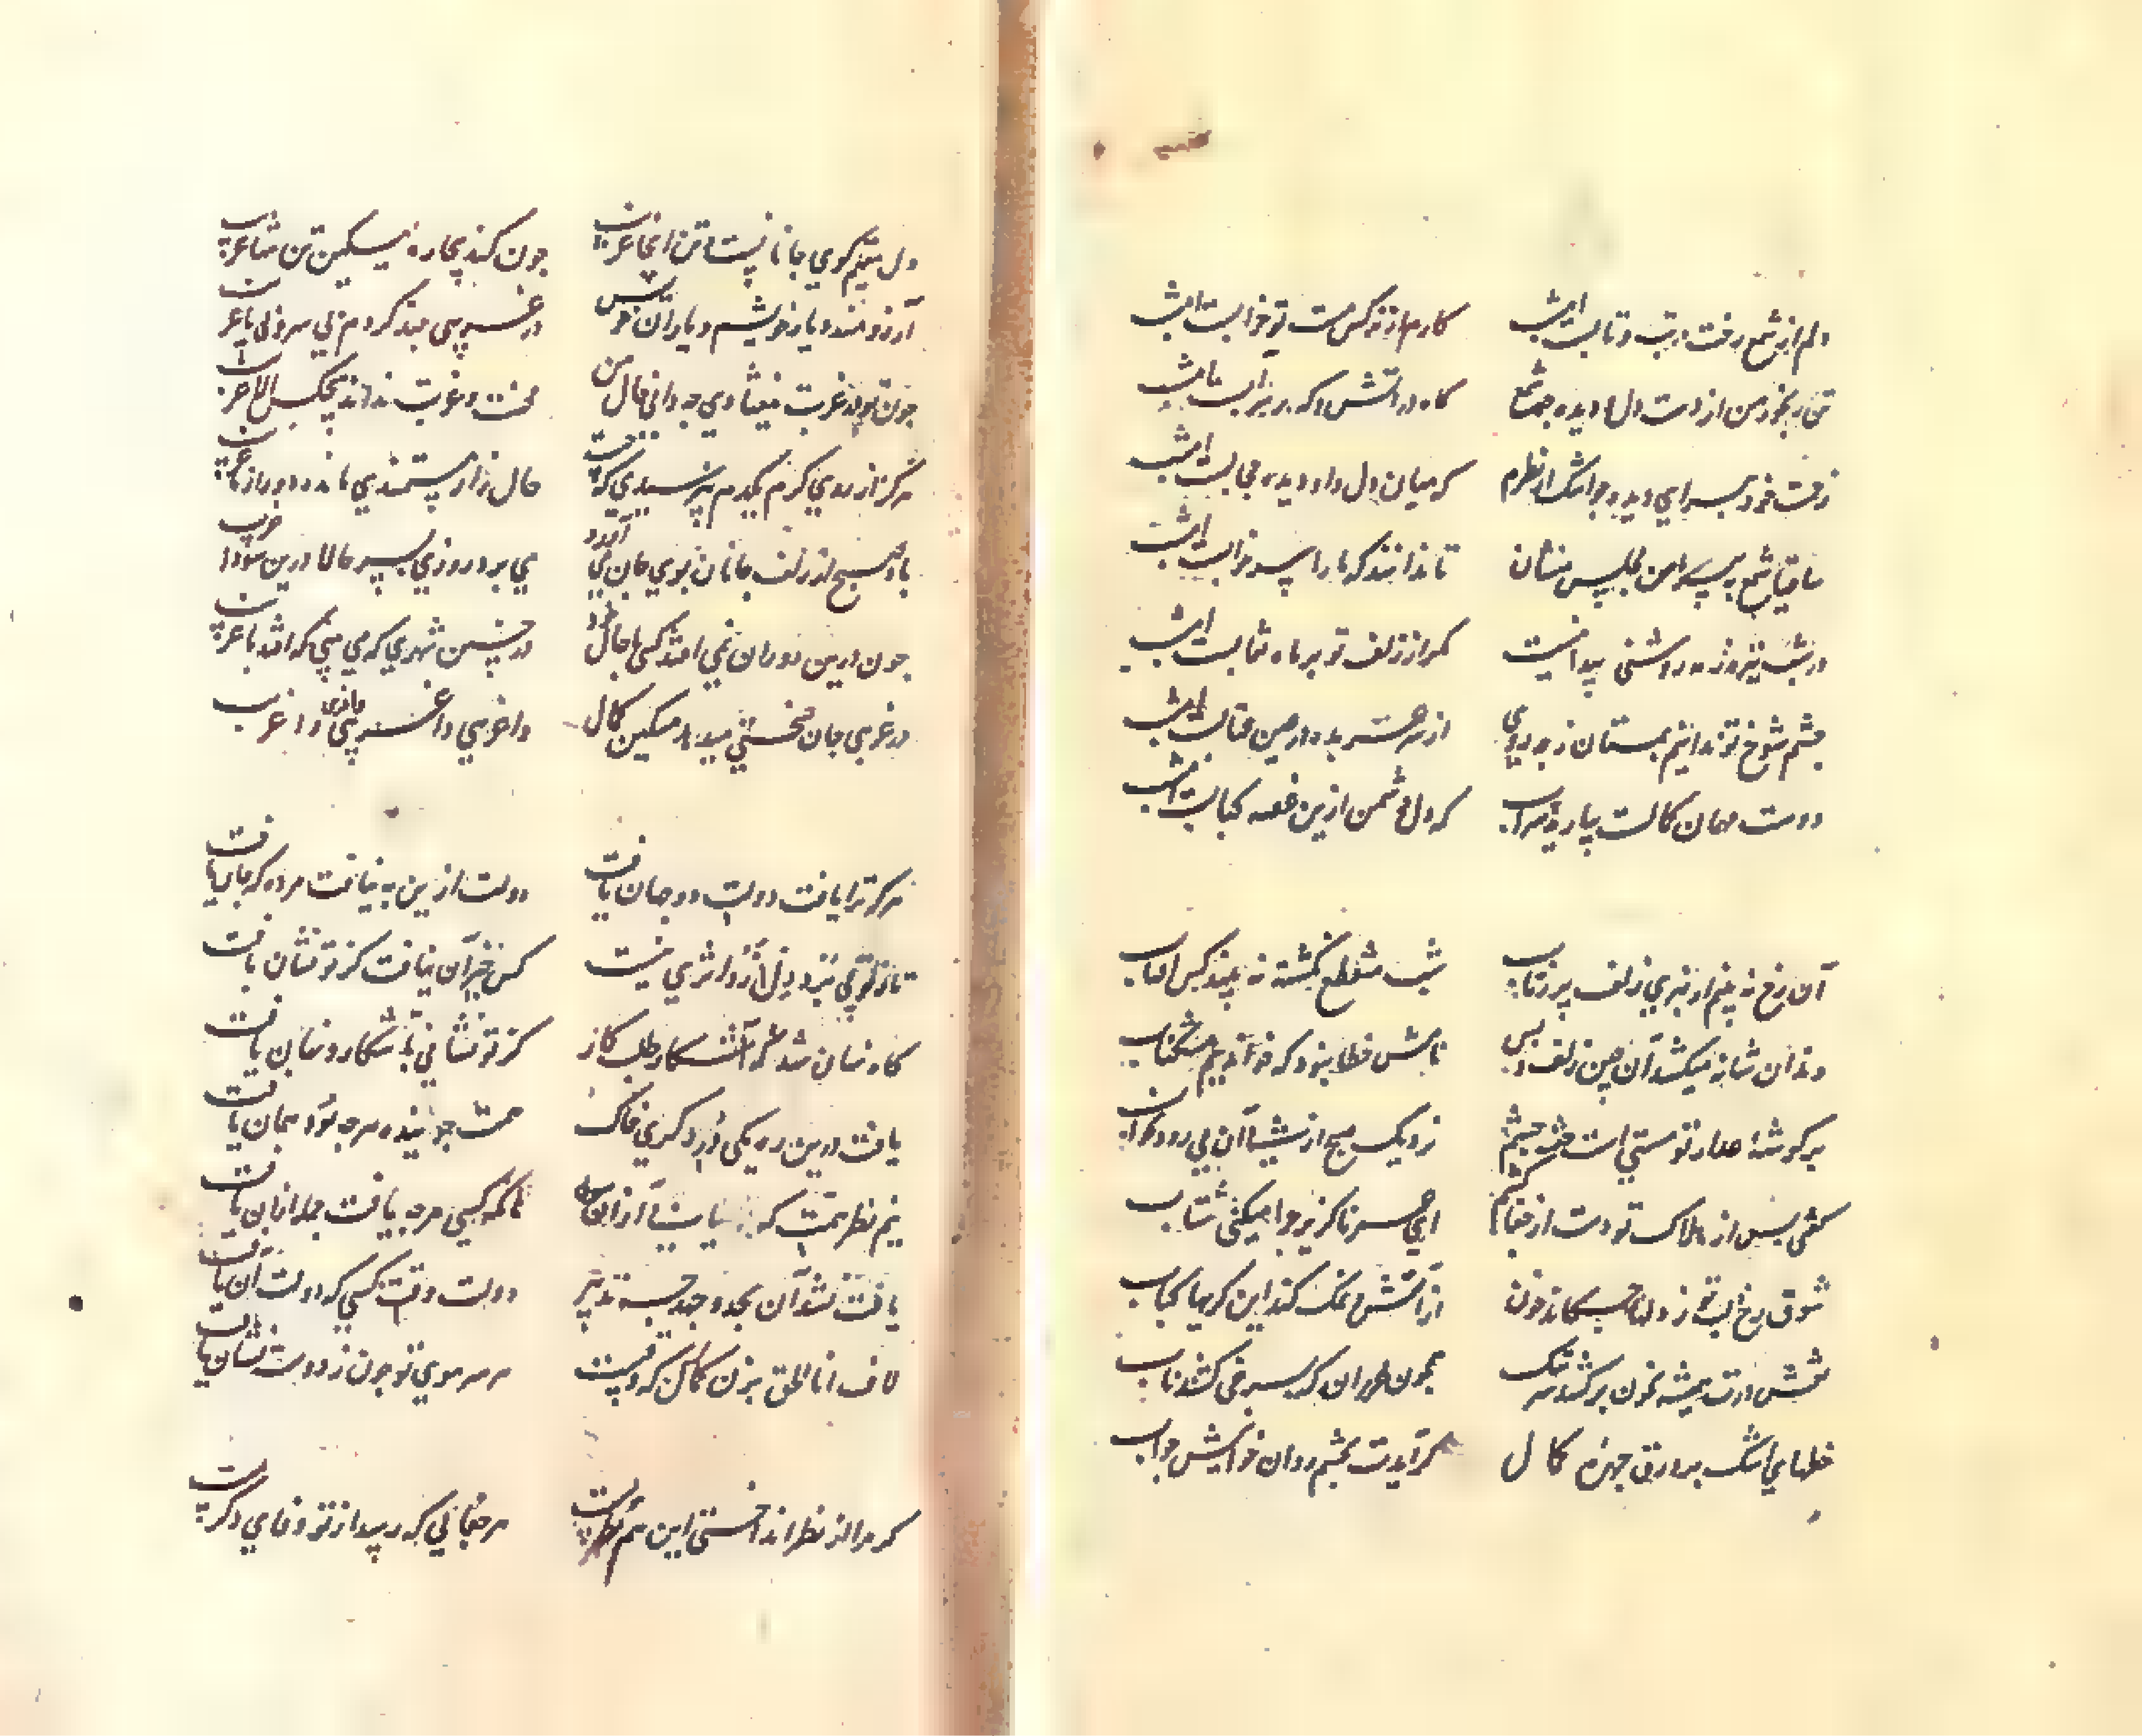 دلم از شمع رخت در تب و تابست امشب
کارم از نرگس مست تو خرابست امشب
تن رنجور من از دست دل و دیده چو شمع
گاه در آتش و گه بر سر آبست امشب
رخت خود بر ای دیده چو اشک از نظرم
که میان دل و دیده حجابست امشب
ساقیا شمع به پیرامن مجلس منشان
تا ندانند که ما را سر خوابست امشب
در شب تیره روشنی پیدا نیست
مگر از زلف تو بر ماه نقابست امشب
چشم شوخ تو ندانم بمستان ز چه روی
از سر در عین عتابست امشب
دوست مهمان کمالست بیارید شراب
که دل دشمن ازین غصه کبابست امشب
آن رخ نه بینم از تیری زلف پر زتاب
شب منقطع نگشته نه بیند کس آفتاب
دندان شانه میکشد آن چین زلف و بس
نامش خطا بود که نخواندیم مشکناب
بر گوشه عذار تو مستی است خفته چشم
نزدیک صبح از آن می رود بخواب
گفتی پس از هلاک تو دست از جفا کشم
ای عمر ناگزیر چرا میکنی شتاب
شوق رخ و لبت ز دلها چکاند خون
از آتش و نمک کند این گریها کباب
نقش درت همیشه بخون بر کشد سرشک
همچون که سرخی کشد بباب
خطهای اشک بر ورق چهره کمال
گر آیدت بچشم روان خوانیش جواب
دل مقیم کوی جانانست و تن اینجا غریب
چون کند بیچاره مسکین تن تنها غریب
آرزومند دیار خویشم و یاران خویش
در غریبی چند گردم بی سر و بی پا غریب
چون تو در غربت نیفتادی چه دانی حال من
محنت و غربت نداند هیچکس الا غریب
هرگز از روی کرم یکدم نپرسیدی که هست
حال زار مستمندی مانده دور از ما غریب
باد صبح از زلف جانان بوی جان می آورد
می برد روزی بسر حالا درین سودا غریب
چون درین دوران نمی افتد کسی با حال خود
در چنین شهری که می بینی که افتد با غریب
در غریبی جان بسختی میدهد مسکین کمال
وا غریبی وا غریبی وا غریب
هر که ترا یافت دولت دو جهان یافت
دولت ازین به نیافت هر که چنان یافت
تا ز تویی تو در دل اثری نیست
کس خبر آن نیافت کز تو نشان یافت
گاه نهان شد گه آشکار طلبکار
کز تو نشانی بآشکار و نهان یافت
یافت درین ره یکی در دگری خاک
همت جوینده هرچه بود همان یافت
نیم نظر همت که یافت از آن
نا که کسی هرچه یافت جمله از آن یافت
یافت نشد آن بجد و جهد به تدبیر
دولت وقت کسی که دولت آن یافت
لاف انا الحق بزن کمال که وقتست
هر سر موی تو چون ز دوست نشان یافت
گر مرا از نظر انداختی این هم نظریست
هر جفائی که رسید از تو وفای دگریست